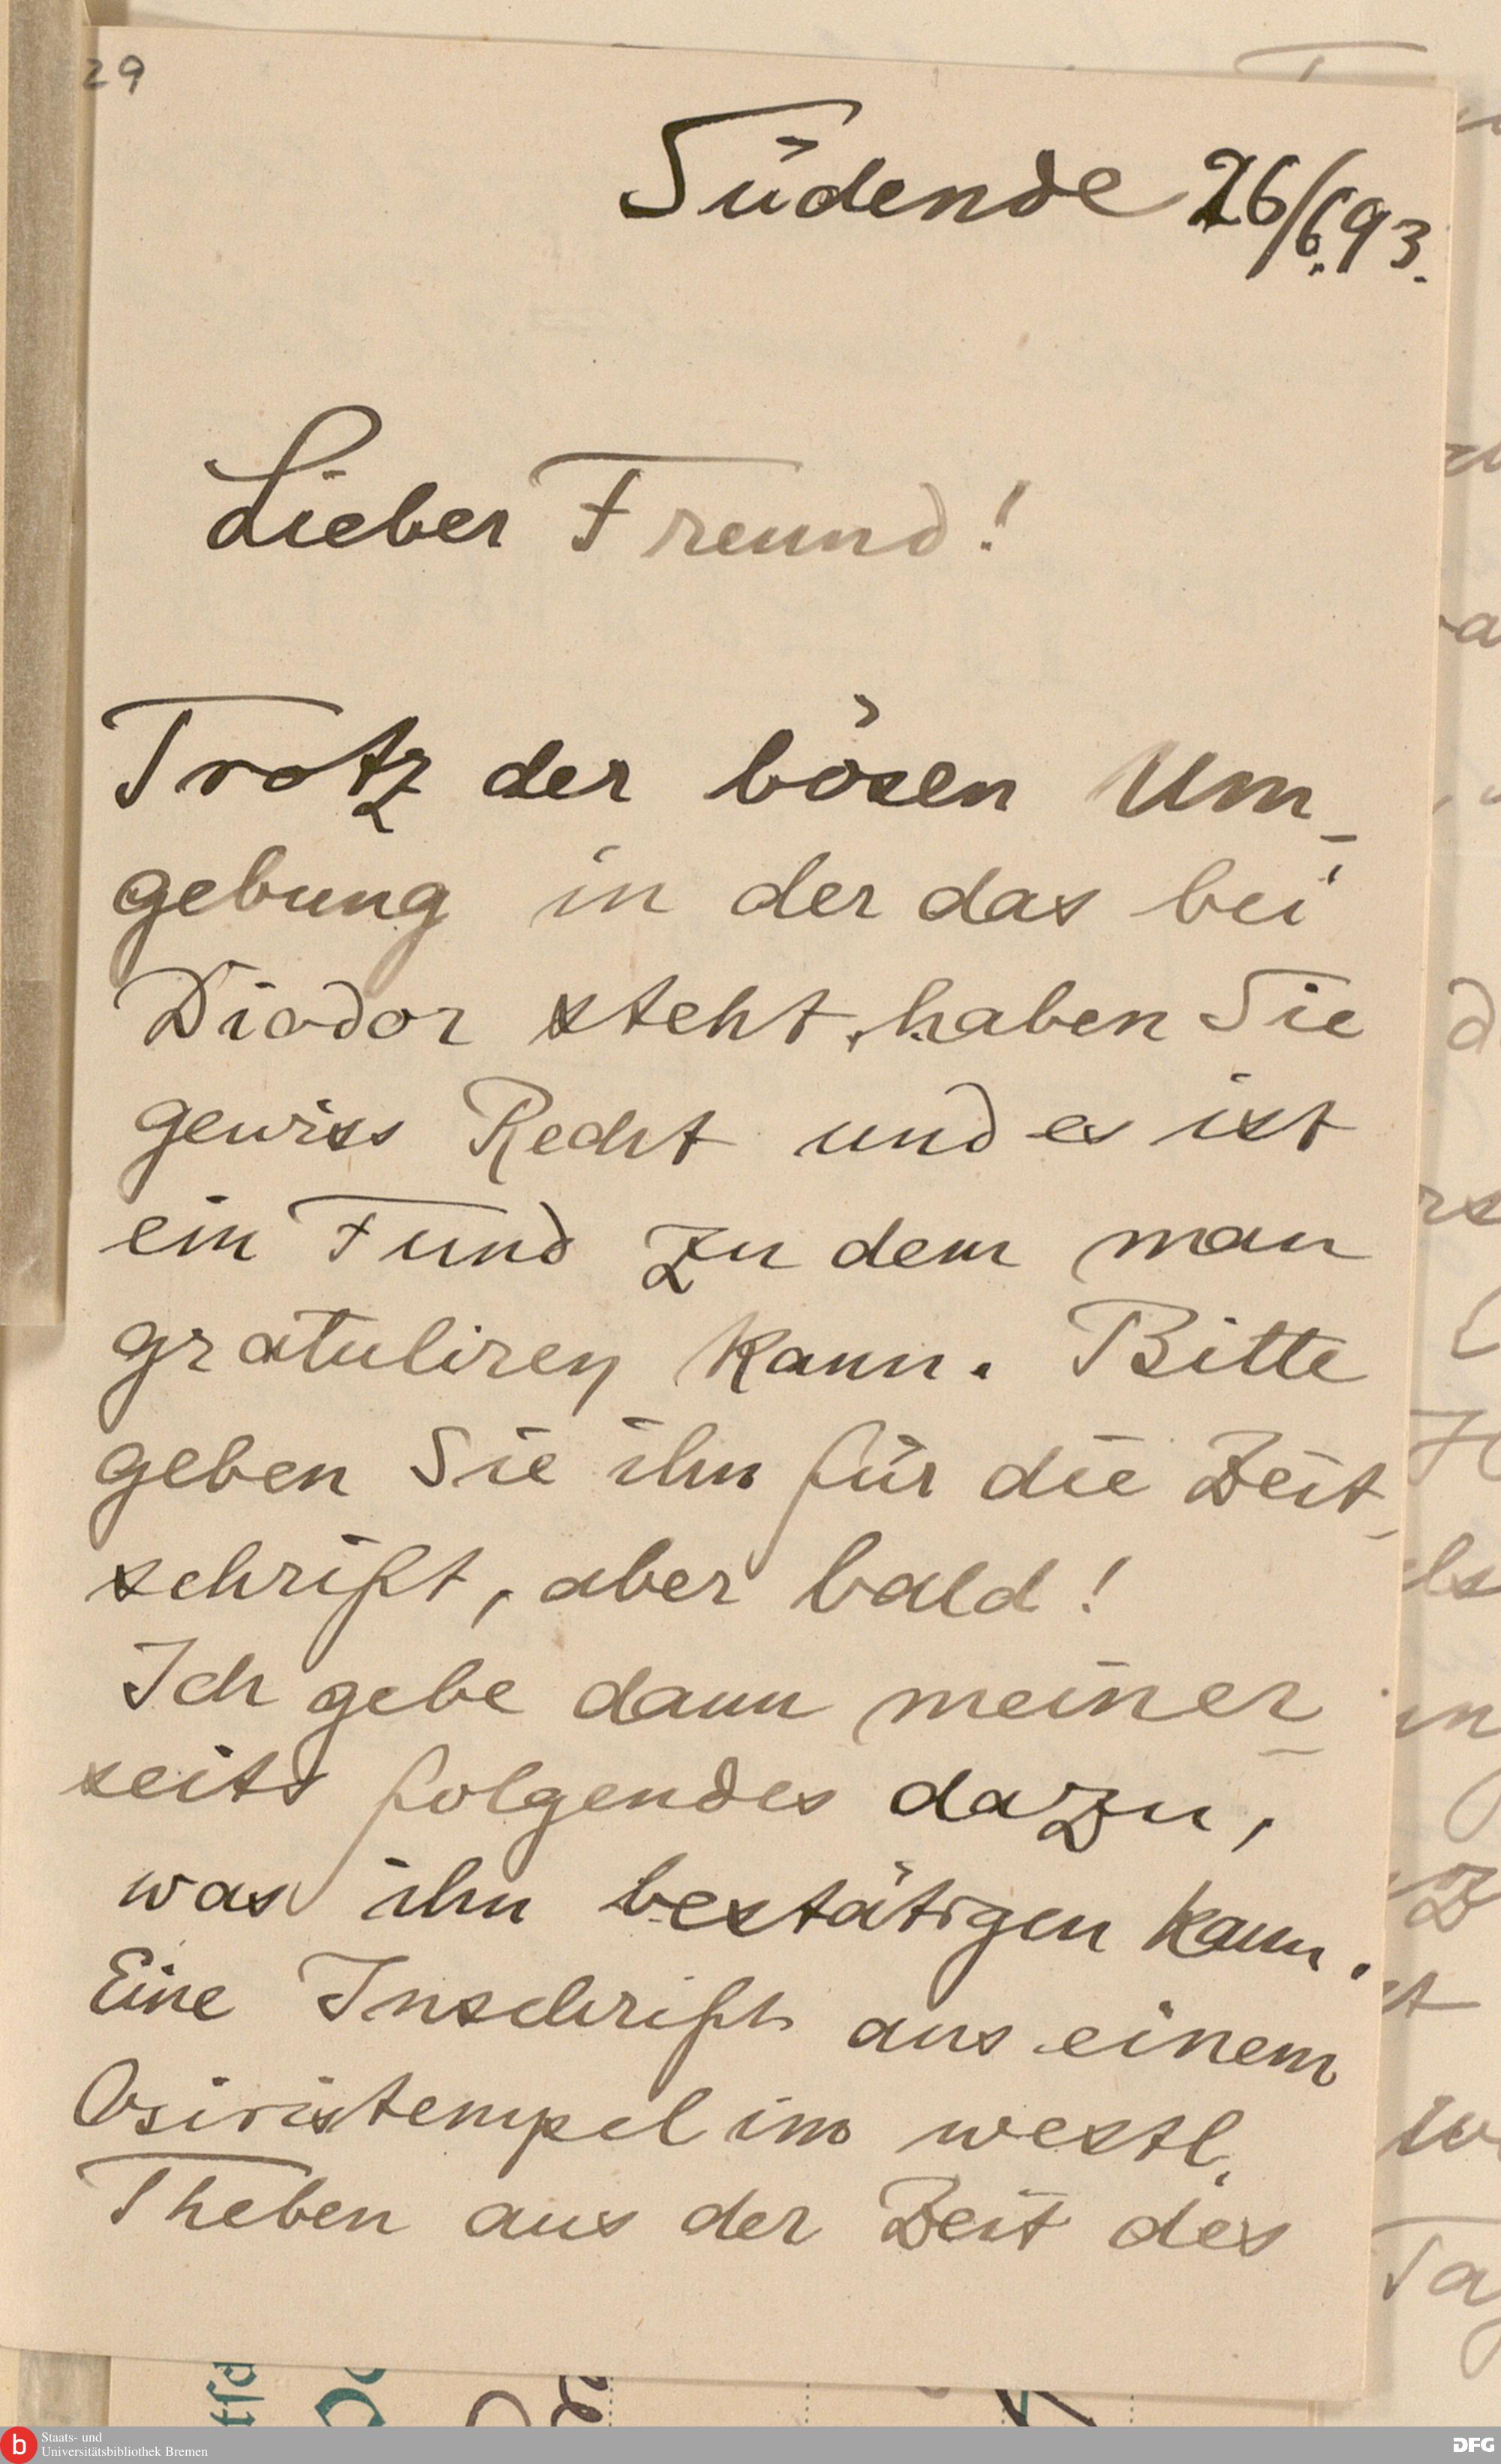 29
Südende 26/6.93.
Lieber Freund!
Trotz der bösen Um-
gebung in der das bei
Diodor steht, haben Sie
gewiss Recht und es ist
ein Fund zu dem man
gratuliren kann. Bitte
geben Sie ihn für die Zeit-
schrift, aber bald!
Ich gebe dann meiner-
seits folgendes dazu,
was ihn bestätigen kann.
Eine Inschrift aus einem
Osiristempel im westl.
Theben aus der Zeit des
b
Staats- und
Universitätsbibliothek Bremen
DFG